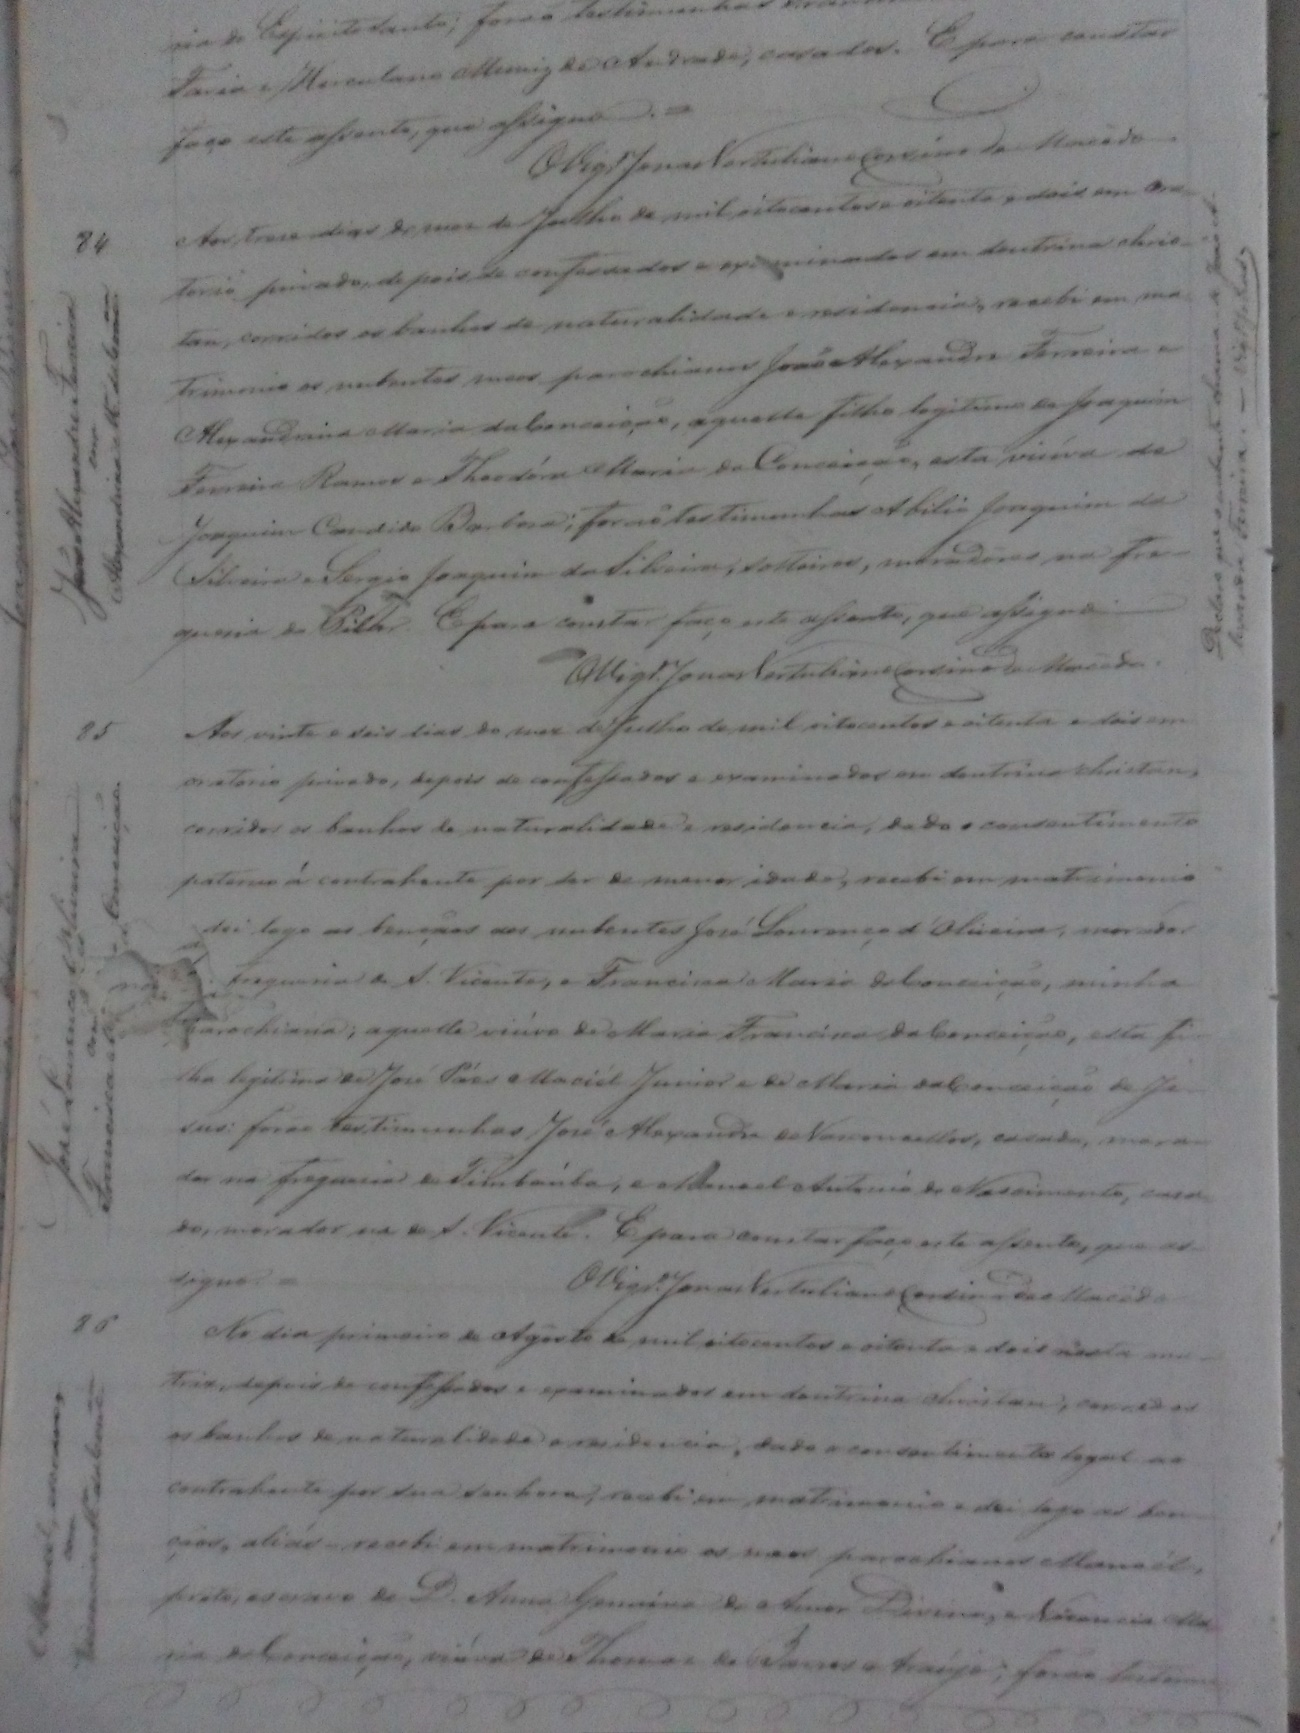 ria do Espirito Santo; forão testimunhas
Faria e Herculano Muniz de Andrade, casados. E para constar
faço este assento, que assigno. =
O Vigr.º Jonas Vertuliano Corsino de Macêdo
84
João Alexandre Ferreira
com
Alexandrina M. da Conc.ão
Aos trese dias do mez de Julho de mil oitocentos e oitenta e dois em ora-
torio privado, depois de confessados e examinados em doutrina chris-
tan, corridos os banhos de naturalidade e residencia, recebi em ma-
trimonio os nubentes meos parochianos João Alexandre Ferreira e
Alexandrina Maria da Conceição, aquelle filho legitimo de Joaquim
Ferreira Ramos e Theodóra Maria da Conceição, esta viúva de
Joaquim Candido Barbosa; forão testimunhas Abilio Joaquim da
Silveira e Sergio Joaquim da Silveira, solteiros, moradores na fre-
guesia do Pilar. E para constar faço este assento, que assigno
O Vigr.º Jonas Vertuliano Corsino de Macêdo.
Declaro que o nubente chama-se João A-
lexandre Ferreira. —
85
José Lourenço d'Oliveira
com
Francisca M. da Conceição
Aos vinte e seis dias do mez de Julho de mil oitocentos e oitenta e dois em
oratorio privado, depois de confessados e examinados em doutrina christan,
corridos os banhos de naturalidade e residencia, dado o consentimento
paterno á contrahente por ser de menor idade, recebi em matrimonio
dei logo as bençãos aos nubentes José Lourenço d'Oliveira, morador
na freguesia de S. Vicente, e Francisca Maria da Conceição, minha
parochiana; aquelle viúvo de Maria Francisca da Conceição, esta fi-
lha legitima de José Páes Maciél Junior e de Maria da Conceição de Je-
sus: forão testimunhas José Alexandre de Vasconcellos, casado, mora-
dor na freguesia de Timbaúba, e Manoel Antonio do Nascimento, casa-
do, morador na de S. Vicente. E para constar faço este assento, que as-
signo. =
O Vigr.º Jonas Vertuliano Corsino de Macêdo
86
Manoél, escravo,
com
Vicencia M. da Conc.ão
No dia primeiro de Agosto de mil oitocentos e oitenta e dois nesta ma-
triz, depois de confessados e examinados em doutrina christan, corridos
os banhos de naturalidade e residencia, dado o consentimento legal ao
contrahente por sua senhora, recebi em matrimonio e dei logo as ben-
çãos, aliás - recebi em matrimonio os meos parochianos Manoél,
preto, escravo de D. Anna Genuina do Amor Divino, e Vicencia Ma-
ria da Conceição, viúva de Thomaz de Barros e Araújo; forão testimu-